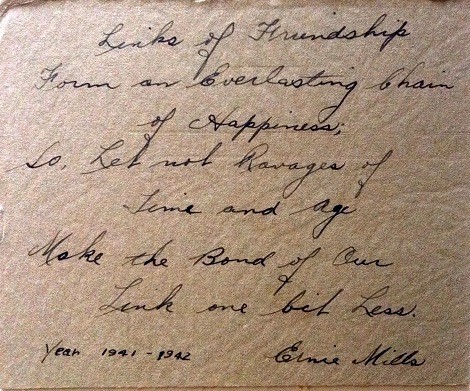 Links of Friendship
Form an Everlasting Chain
of Happiness;
So, Let not Ravages of
Time and Age
Make the Bond of Our
Link one bit Less.
Year 1941-1942 Ernie Mills